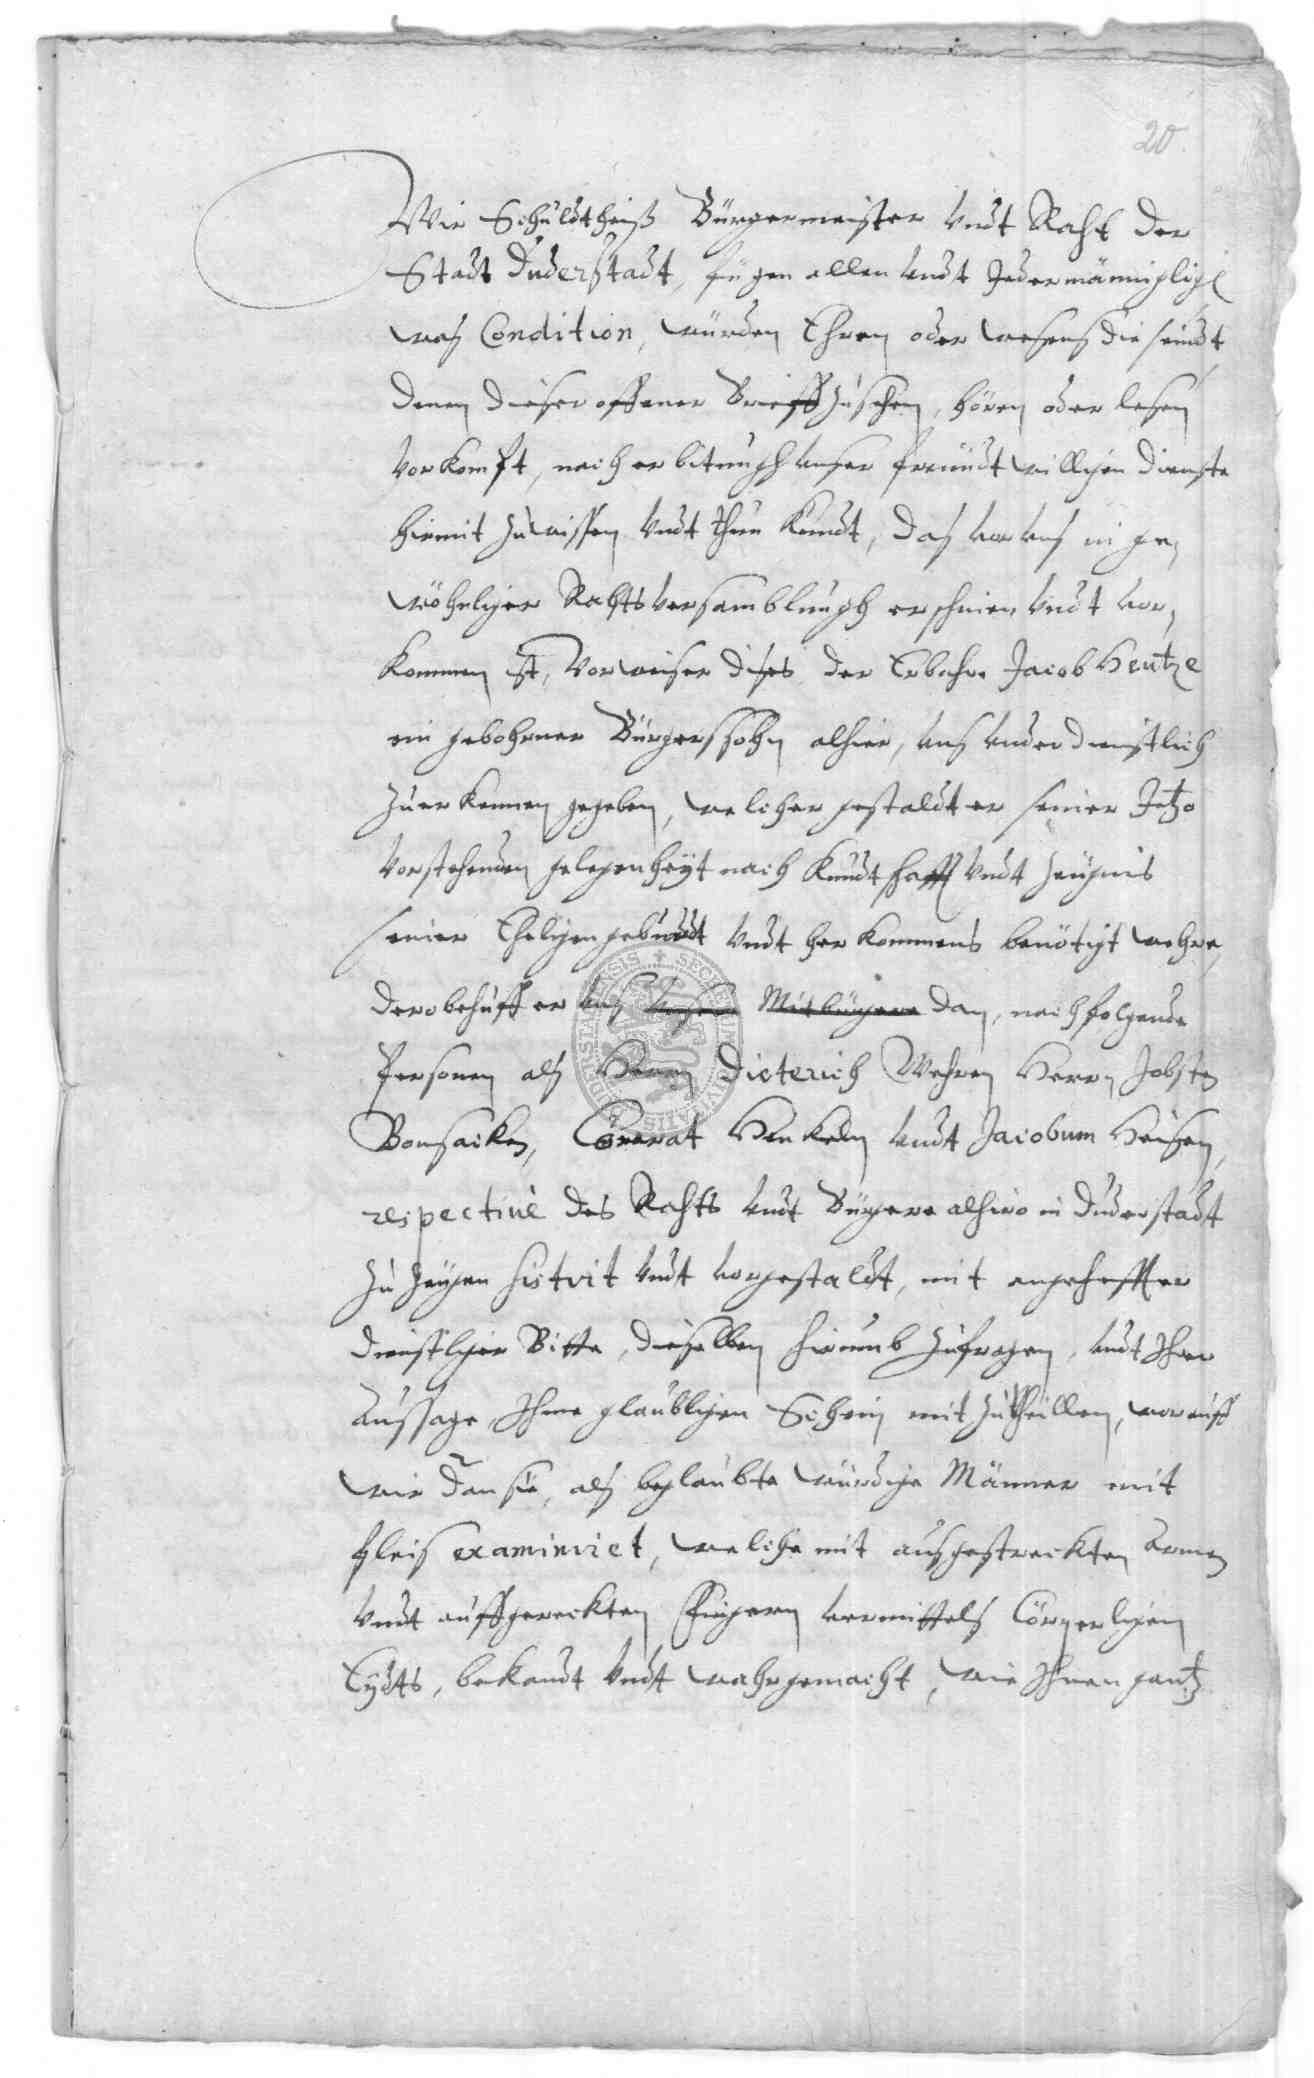 20.
Wir Schuldtheiß Bürgermeister vndt Raht der
Stadt Duderstadt, fügen allen vndt Jedermänniglich
waß Condition, würden Ehren oder wesens die seindt,
denen dieser offener Brieff zusehen, hören oder lesen
vorkompt, nach erbitungh vnser freundtwilligen dienste
hiemit zuwissen vndt thun Kundt, daß vor vnß in ge¬
wöhnliger Rahtsversamblungh erschienen vndt vor¬
kommen ist, Vorweiser dises der Erbahre Jacob Hentze
ein gebohrner Bürgerssohn alhier, vns vnderdienstlich
zuerkennen gegeben, welicher gestaldt er seiner Jetzo
vorstehenden gelegenheyt nach Kundtschafft vndt zeugnis
seiner Eheligen geburdt vndt herkommens benötigt wehre,
derobehuff er vnß vnsere Mitbürgere dan, nachfolgende
Personen alß Herrn Dieterich Wehren Herrn Jobsten
Bonsacken, Conrat Henkeln vndt Jacobum Heisen,
respectivè des Rahts vndt Bürgere alhiro in Duderstadt
zu Zeugen sistirt vndt vorgestaldt, mit angeheffter
dienstliger Bitte, dieselben hirumb zufragen, vndt Ihrer
Aussage Ihme glaubligen Schein mit zutheillen, worauff
wir dan sie, alß beglaubte würdige Männer mit
fleis examiniret,weliche mit außgestreckten Armen
vndt auffgereckten Fingern vermittelß Cörperligen
Eydts, bekandt vndt wahrgemacht, wie Ihnen gantz
SECRETUM CIVITATIS DUDERSTADENSIS